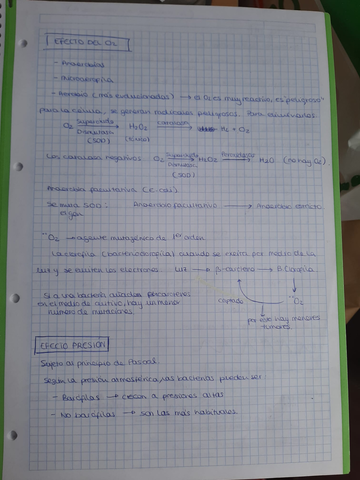 EFECTO DEL O2
- Anaerobios
- Aerobios (más evolucionados) → el O2 es muy reactivo, es peligroso
para la célula, se generan moléculas peligrosas. Para
O2 Superóxido Dismutasa (SOD) → H2O2 catalasa → H2 + O2
Los catalasa negativos O2 Superóxido Dismutasa (SOD) → H2O2 Peroxidasa → H2O (no hay O2)
Anaerobio facultativo (E. coli)
Se mira SOD: Anaerobio facultativo → Anaerobio estricto
O2 → agente mutagénico de 1er orden
La clorofila (bacterioclorofila) cuando se excita por medio de la
luz y se excitan los electrones. luz → β-caroteno → B. Clorofila
Si a una bacteria añadimos
en el medio de cultivo, hay un menor
número de mutaciones.
captado
O2
por eso hay menores
tumores.
EFECTO PRESIÓN
Sujeto al principio de Pascal.
Según la presión atmosférica, las bacterias pueden ser
- Barófilas → crecen a presiones altas
- No barófilas → son las más habituales